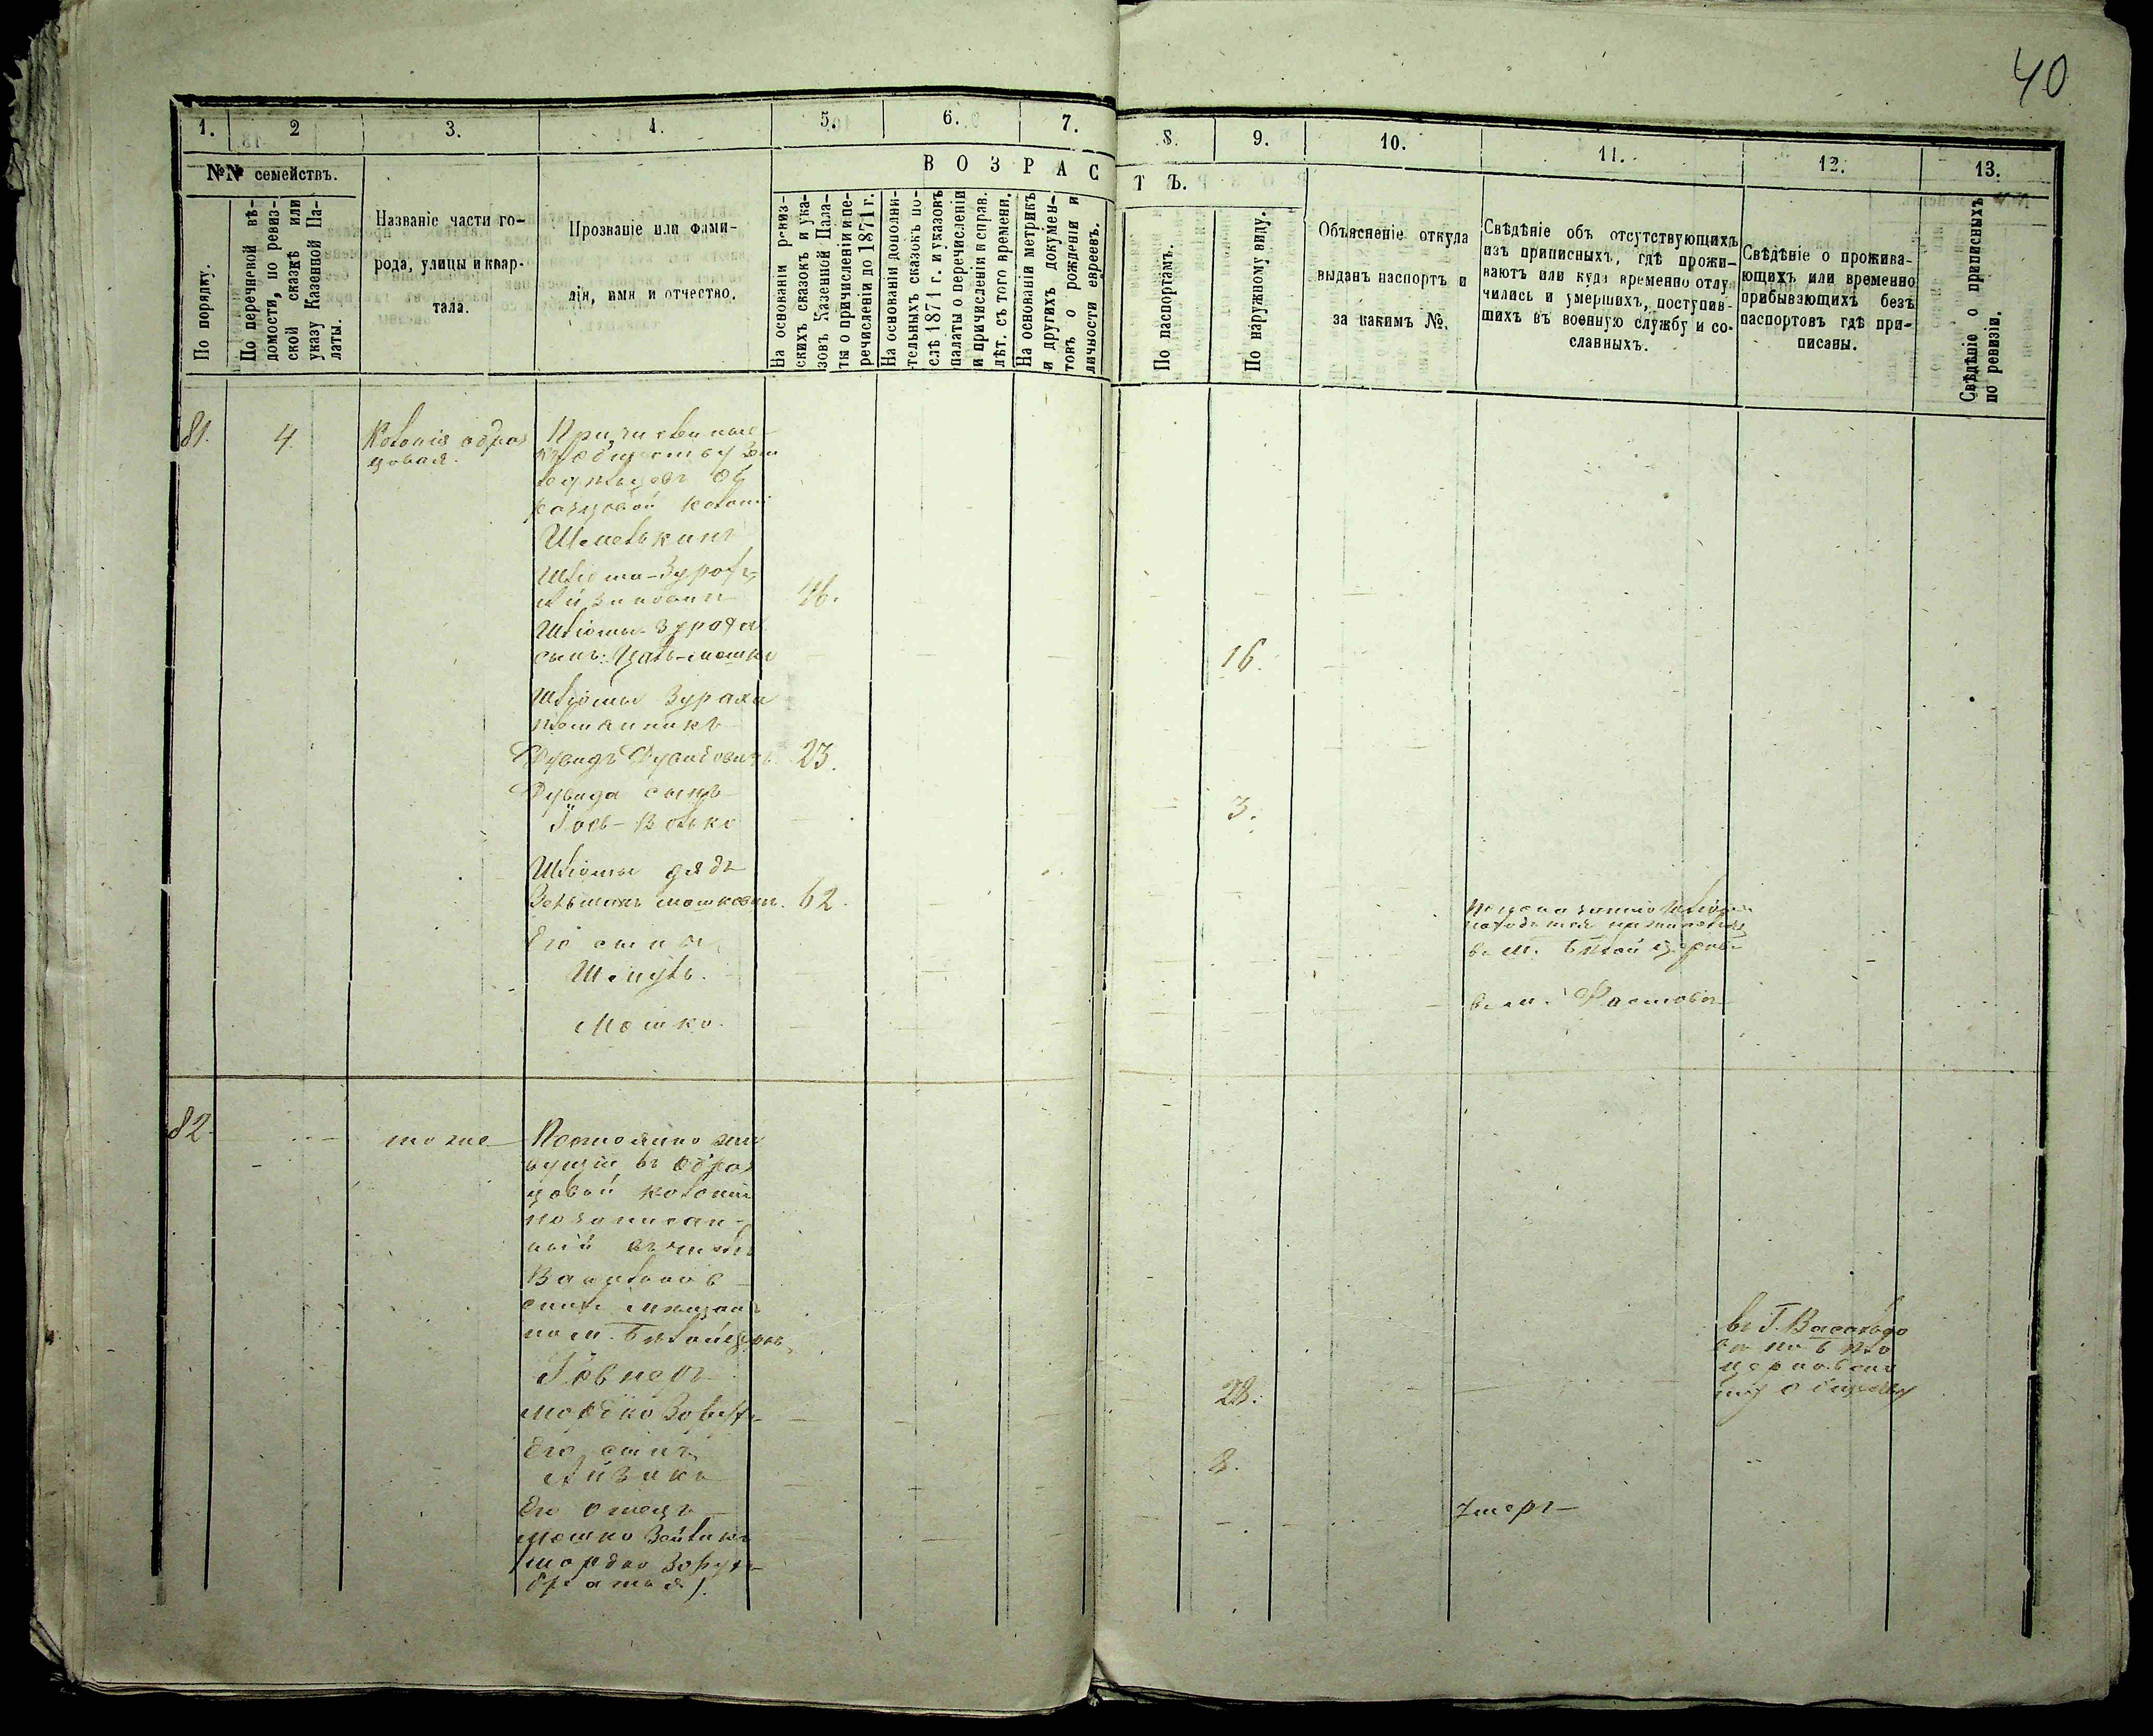 40
1. 2 3. 4. 5. 6. 7. 8. 9. 10. 11. 12. 13.
№№ семействъ.
В О З Р А С Т Ъ.
По порядку.
По перечневой вѣ-
домости, по ревиз-
ской сказкѣ или
указу Казенной Па-
латы.
Названіе части го-
рода, улицы и квар-
тала.
Прозваніе или фами-
лія, имя и отчество.
На основаніи ревиз-
скихъ сказокъ и ука-
зовъ Казенной Пала-
ты о причисленіи и пе-
речисленіи до 1871 г.
На основаніи дополни-
тельныхъ сказокъ по-
слѣ 1871 г. и указовъ
палаты о перечисленіи
и причисленіи и справ.
лѣт. съ того времени.
На основаніи метрикъ
и другихъ докумен-
товъ о рожденіи и
личности евреевъ.
По паспортамъ.
По наружному виду.
Объясненіе откуда
выданъ паспортъ и
за какимъ №.
Свѣдѣніе объ отсутствующихъ
изъ приписныхъ, гдѣ прожи-
ваютъ или куда временно отлу-
чились и умершихъ, поступив-
шихъ въ военную службу и со-
сланныхъ.
Свѣдѣніе о прожива-
ющихъ или временно
прибывающихъ безъ
паспортовъ гдѣ при-
писаны.
Свѣдѣніе о приписныхъ
по ревизіи.
81. 4. Колонія образ
цовая.
къ обществу Зем
ледѣльцевъ Об
разцовой колоніи
Шліома-Зурахъ
46.
Шліомы Зураха
сынъ: Цаль-мошко 16.
Шліомы Зураха
племянникъ
Дувидъ Дувидовичъ 23.
Дувида сынъ
Іось-Волько 3.
Шліомы дядя
Зельманъ мошковичъ 62.
въ м. Бѣлой церкви
Его сыны
Шмуль.
въ м. Фастовѣ
Мошко.
82. тоже Постоянно жи
вущій въ образ
цовой колоніи
но записан-
ный въ число
Васильков
скихъ мѣщанъ
по м. Бѣлойцеркви
въ Г. Василько
вѣ по бѣло
церковско
му обществу
мордко 28.
Его сынъ
Айзикъ 8.
Его отецъ
мошко
Умеръ
мордко
братья).